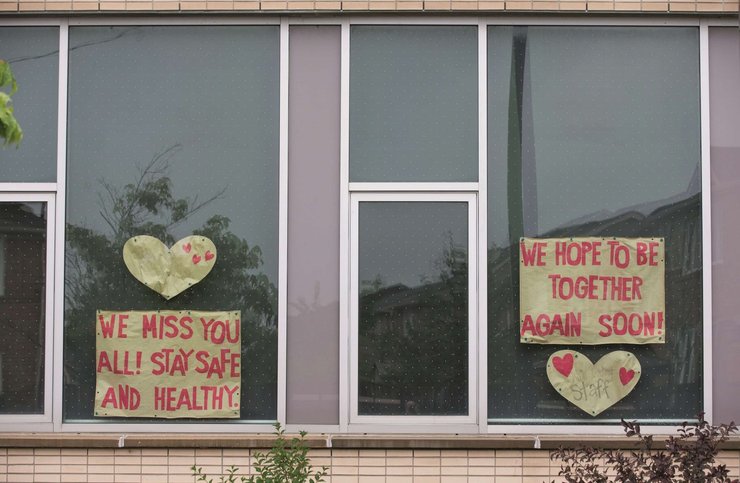 WE MISS YOU
ALL! STAY SAFE
AND HEALTHY.
WE HOPE TO BE
TOGETHER
AGAIN SOON!
Staff